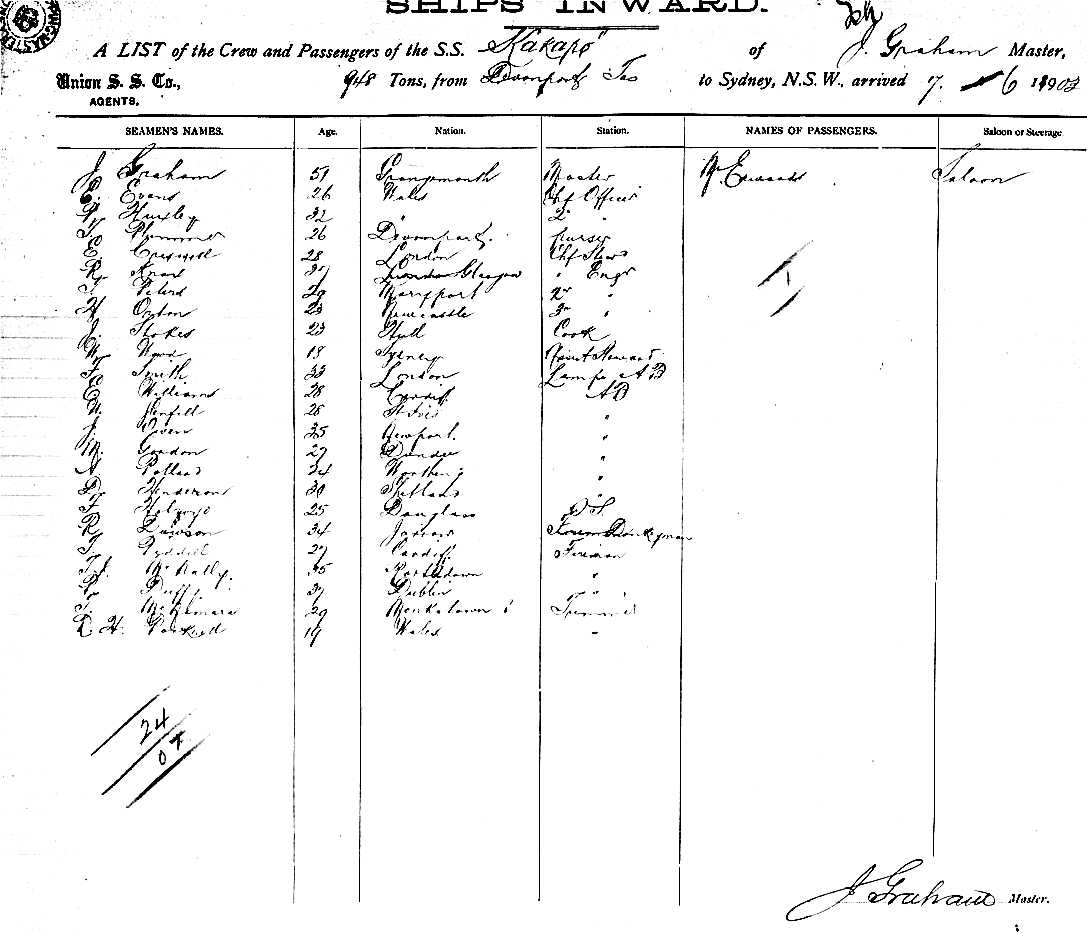 SHIPS INWARD.
A LIST of the Crew and Passengers of the S.S. "Kakapo" of J. Graham Master,
Union S. S. Co., 948 Tons, from Devonport Tas to Sydney, N.S.W., arrived 7. 6 1902
AGENTS.
SEAMEN'S NAMES. Age. Nation. Station. NAMES OF PASSENGERS. Saloon or Steerage
J. Graham 51 Grangemouth Master Mr Edwards Saloon
E. Evans 26 Wales Chf Officer
Huxley 32 " 2nd "
Plummer 26 Devonport. Purser
E. 28 London Chf Stewd
R. Knox 37 Glasgow " Engr
Peters 29 Maryport 2nd "
H. Ogton 23 Newcastle 3rd "
J. Stokes 23 Hull Cook
W. Ward 18 Sydney Steward
F. Smith 33 London Lamps AB
E. Williams 28 Cardiff AB
28 St Ives "
J. Owen 35 Newport. "
M. Gordon 27 Dundee "
A. Pollard 24 Worthing "
D. Henderson 30 Shetland "
F. 25 Douglas O.S.
R. Dawson 34 Jarrow Donkeyman
27 Cardiff Fireman
T. J. McNally. 35 "
Duffy. 37 Dublin "
T. McNamara 29 Monkstown
D. H. 19 Wales "
24
04
J Graham Master.